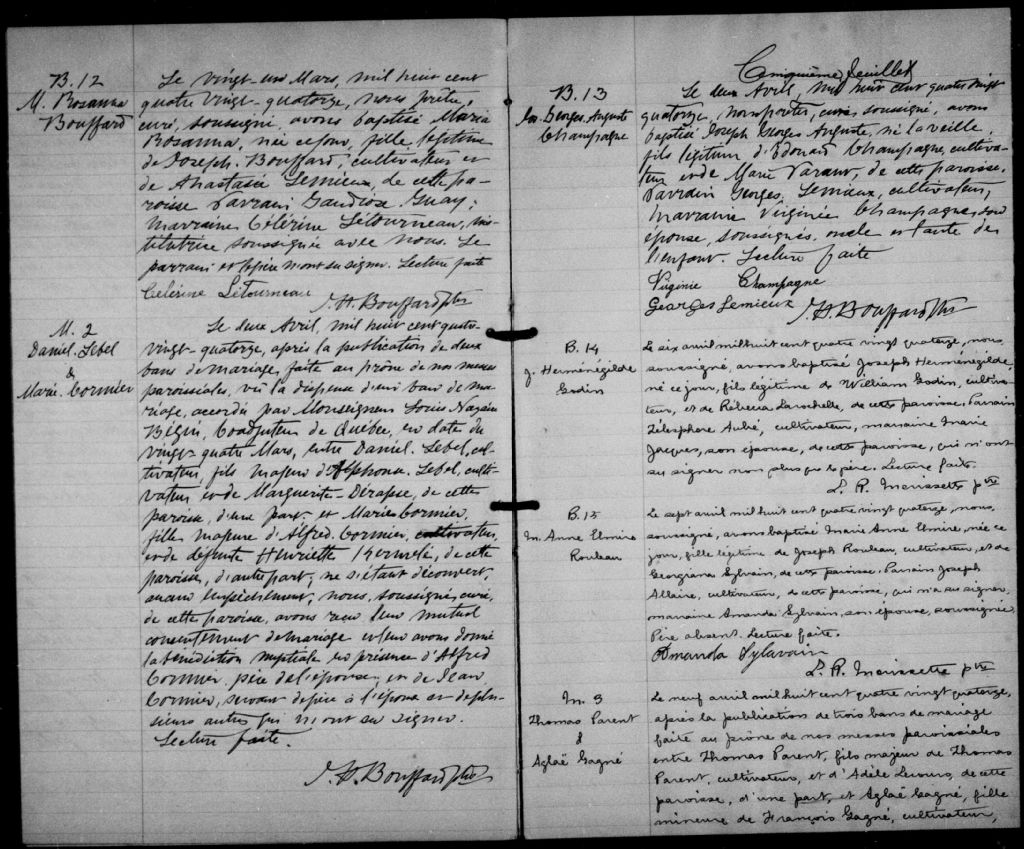 B. 12
M. Rosanna
Bouffard
Le vingt-un Mars, mil huit cent
quatre vingt-quatorze, nous prêtre,
curé, soussigné, avons baptisé Maria
Rosanna, née ce jour, fille légitime
de Joseph Bouffard, cultivateur et
de Anastasie Lemieux, de cette pa-
roisse Parrain Gaudiose Guay;
Marraine Célérine Létourneau, ins
titutrice soussignée avec nous. Le
parrain et le père n'ont su signer. Lecture faite
Célérine Létourneau
J.H. Bouffard Ptre
M. 2
Daniel. Lebel
&
Marie. Cormier
Le deux Avril, mil huit cent quatre-
vingt-quatorze, après la publication de deux
bans de mariage, faite au prône de nos messes
paroissiales, vu la dispense d'un ban de ma-
riage, accordée par Monseigneur Louis Nazaire
Bégin, Coadjuteur de Québec, en date du
vingt-quatre Mars, entre Daniel. Lebel, cul-
tivateur, fils majeur d'Alphonse. Lebel, culti-
vateur et de Marguerite, de cette
paroisse, d'une part, et Marie Cormier,
fille majeure d'Alfred. Cormier, cultivateur,
et de défunte Henriette, de cette
paroisse, d'autre part; ne s'étant découvert,
aucun empêchement, nous, soussigné, curé,
de cette paroisse, avons reçu leur mutuel
consentement de mariage et leur avons donné
la bénédiction nuptiale en présence d'Alfred
Cormier, père de l'épouse, et de Jean
Cormier, servant de père à l'époux et de plu-
sieurs autres qui n'ont su signer.
Lecture faite.
J.H. Bouffard Ptre
Cinquième feuillet
B. 13
Jos. Georges. Auguste
Champagne
Le deux Avril, mil huit cent quatre vingt
quatorze, nous prêtre, curé, soussigné, avons
baptisé Joseph Georges Auguste, né la veille,
fils légitime d'Edouard Champagne, cultiva-
teur et de Marie, de cette paroisse.
Parrain Georges, Lemieux, cultivateur,
Marraine Virginée Champagne, son
épouse, soussignés, oncle et tante de
l'enfant. Lecture faite
Virginie Champagne
Georges Lemieux
J.H. Bouffard Ptre
B. 14
J. Herménégilde
Godin
Le six avril mil huit cent quatre vingt quatorze, nous,
soussigné, avons baptisé Joseph Herménégilde,
né ce jour, fils légitime de William Godin, cultiva-
teur, et de Rébecca Larochelle, de cette paroisse. Parrain
Télesphore Aubé, cultivateur, marraine Marie
Jacques, son épouse, de cette paroisse, qui n'ont
su signer non plus que le père. Lecture faite.
L. R. Morissette ptre
B. 15
M. Anne Elmire
Rouleau
Le sept avril mil huit cent quatre vingt quatorze, nous,
soussigné, avons baptisé Marie Anne Elmire, née ce
jour, fille légitime de Joseph Rouleau, cultivateur, et de
Georgiana Sylvain, de cette paroisse. Parrain Joseph
Allaire, cultivateur, de cette paroisse, qui n'a su signer,
marraine Amanda Sylvain, son épouse, soussignée.
Père absent. Lecture faite.
Amanda Sylavain
L. R. Morissette ptre
M. 3
Thomas Parent
&
Aglaë Gagné
Le neuf avril mil huit cent quatre vingt quatorze,
après la publication de trois bans de mariage
faite au prône de nos messes paroissiales
entre Thomas Parent, fils majeur de Thomas
Parent, cultivateur, et d'Adèle Lecours, de cette
paroisse, d'une part, et Aglaë Gagné, fille
mineure de François Gagné, cultivateur,